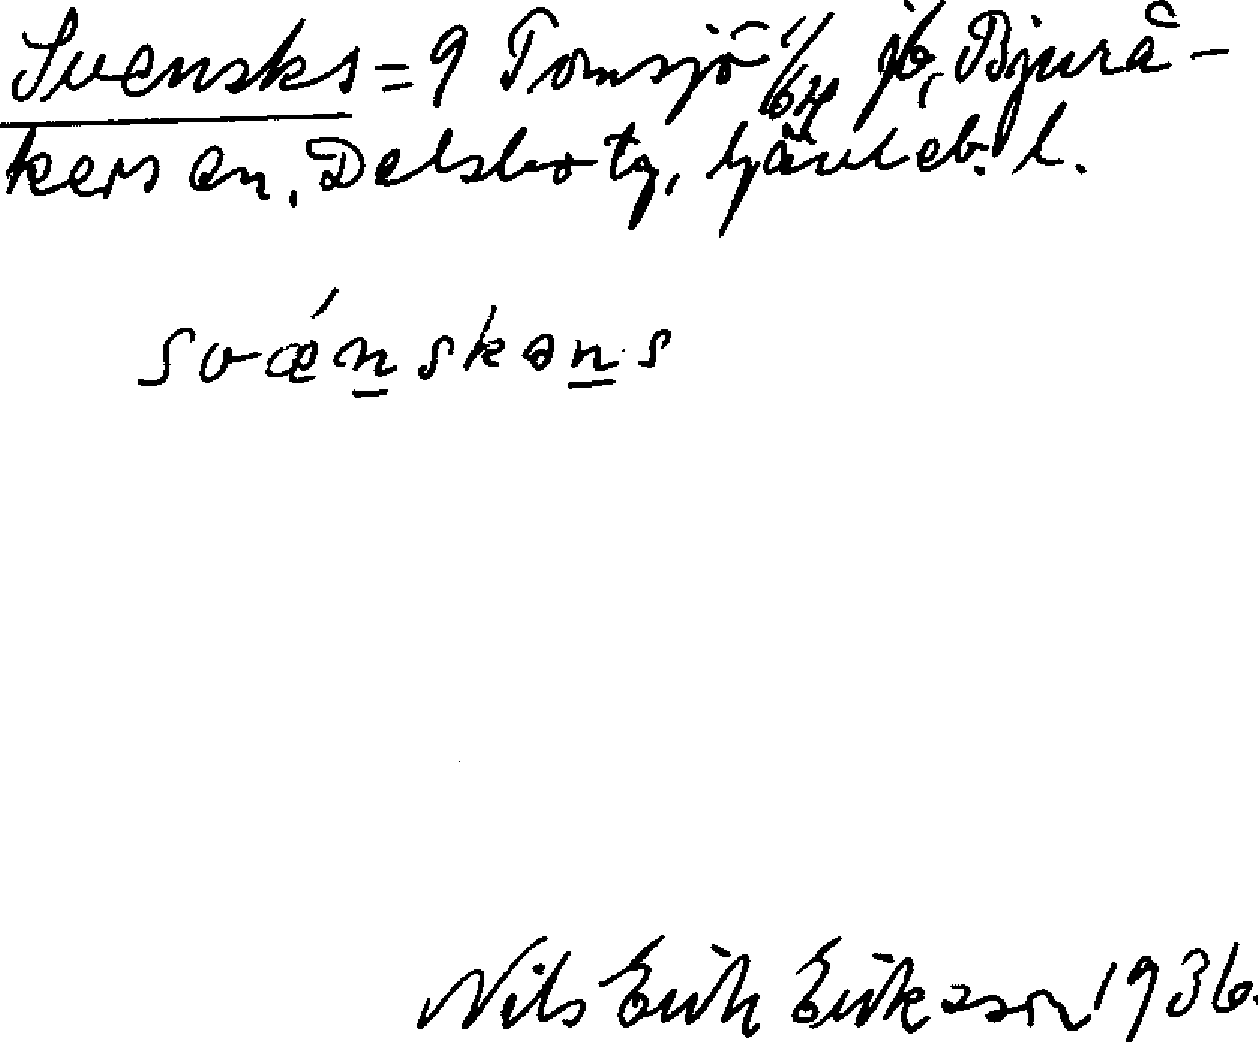 Svensks = 9 Tomsjö 1/64 jb, Bjurå-
kers sn, Delsbo tg, Gävleb. l.
svǽn̲skən̲s
Nils Erik Eriksson 1936.